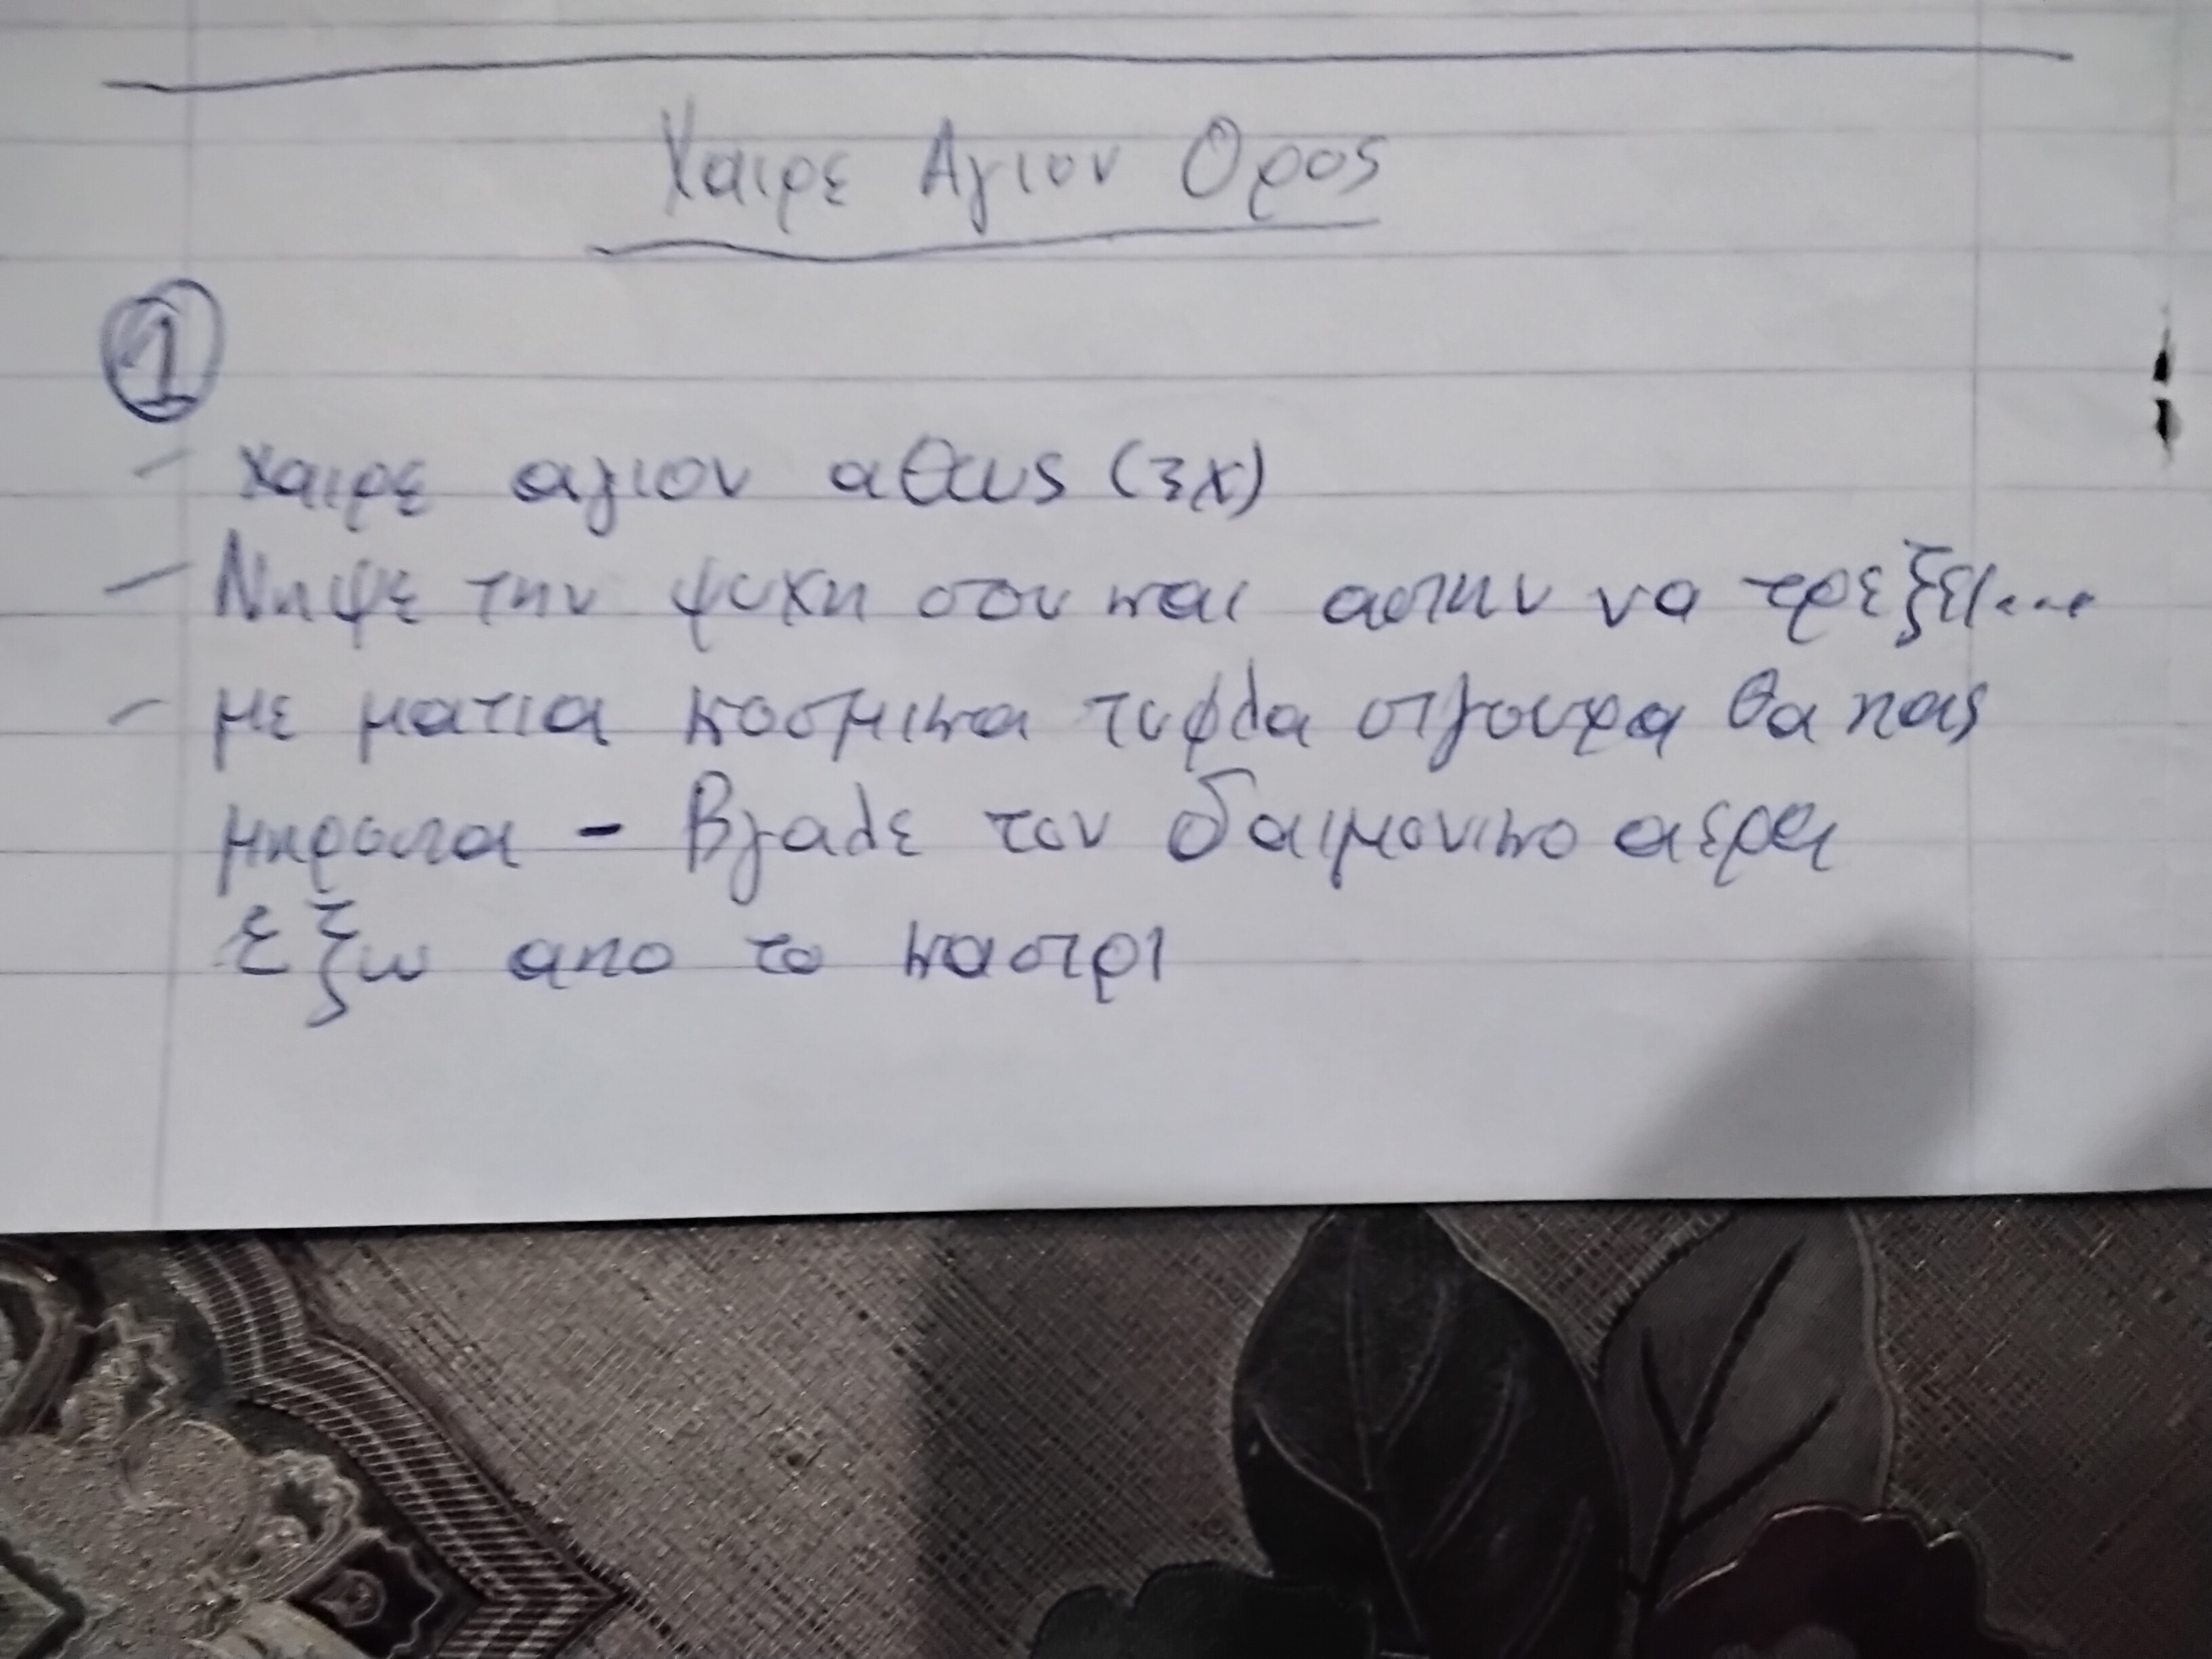 Χαιρε Αγιον Ορος
1
- χαιρε αγιον αθως (3χ)
- Νηψε την ψυχη σου και αστην να τρεξει....
- με ματια κοσμικα τυφλα σιγουρα θα πας
μπροστα - Βγαλε τον δαιμονικο αερα
εξω απο το καστρι